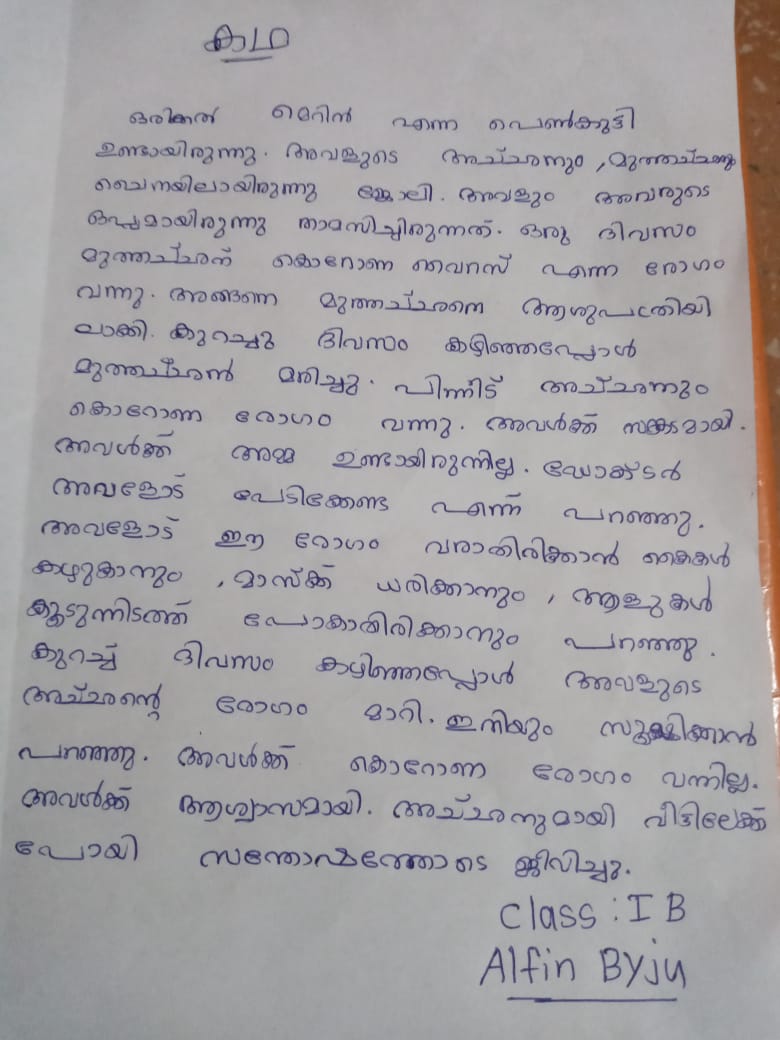 കഥ
ഒരിക്കൽ മെറിൻ എന്ന പെൺകുട്ടി
ഉണ്ടായിരുന്നു. അവളുടെ അച്ഛനും, മുത്തച്ഛനും
ചൈനയിലായിരുന്നു ജോലി. അവളും അവരുടെ
ഒപ്പമായിരുന്നു താമസിച്ചിരുന്നത്. ഒരു ദിവസം
മുത്തച്ഛന് കൊറോണ വൈറസ് എന്ന രോഗം
വന്നു. അങ്ങനെ മുത്തച്ഛനെ ആശുപത്രിയി
ലാക്കി. കുറച്ചു ദിവസം കഴിഞ്ഞപ്പോൾ
മുത്തച്ഛൻ മരിച്ചു. പിന്നീട് അച്ഛനും
കൊറോണ രോഗം വന്നു. അവൾക്ക് സങ്കടമായി.
അവൾക്ക് അമ്മ ഉണ്ടായിരുന്നില്ല. ഡോക്ടർ
അവളോട് പേടിക്കേണ്ട എന്ന് പറഞ്ഞു.
അവളോട് ഈ രോഗം വരാതിരിക്കാൻ കൈകൾ
കഴുകാനും, മാസ്ക്ക് ധരിക്കാനും, ആളുകൾ
കൂടുന്നിടത്ത് പോകാതിരിക്കാനും പറഞ്ഞു.
കുറച്ച് ദിവസം കഴിഞ്ഞപ്പോൾ അവളുടെ
അച്ഛന്റെ രോഗം മാറി. ഇനിയും സൂക്ഷിക്കാൻ
പറഞ്ഞു. അവൾക്ക് കൊറോണ രോഗം വന്നില്ല.
അവൾക്ക് ആശ്വാസമായി. അച്ഛനുമായി വീട്ടിലേക്ക്
പോയി സന്തോഷത്തോടെ ജീവിച്ചു.
Class : I B
Alfin Byju